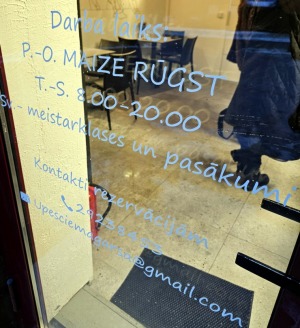 Darba laiks:
P.-O. MAIZE RŪGST
T.-S. 8.00-20.00
Sv.- meistarklases un pasākumi
Kontakti rezervācijām
@gmail.com